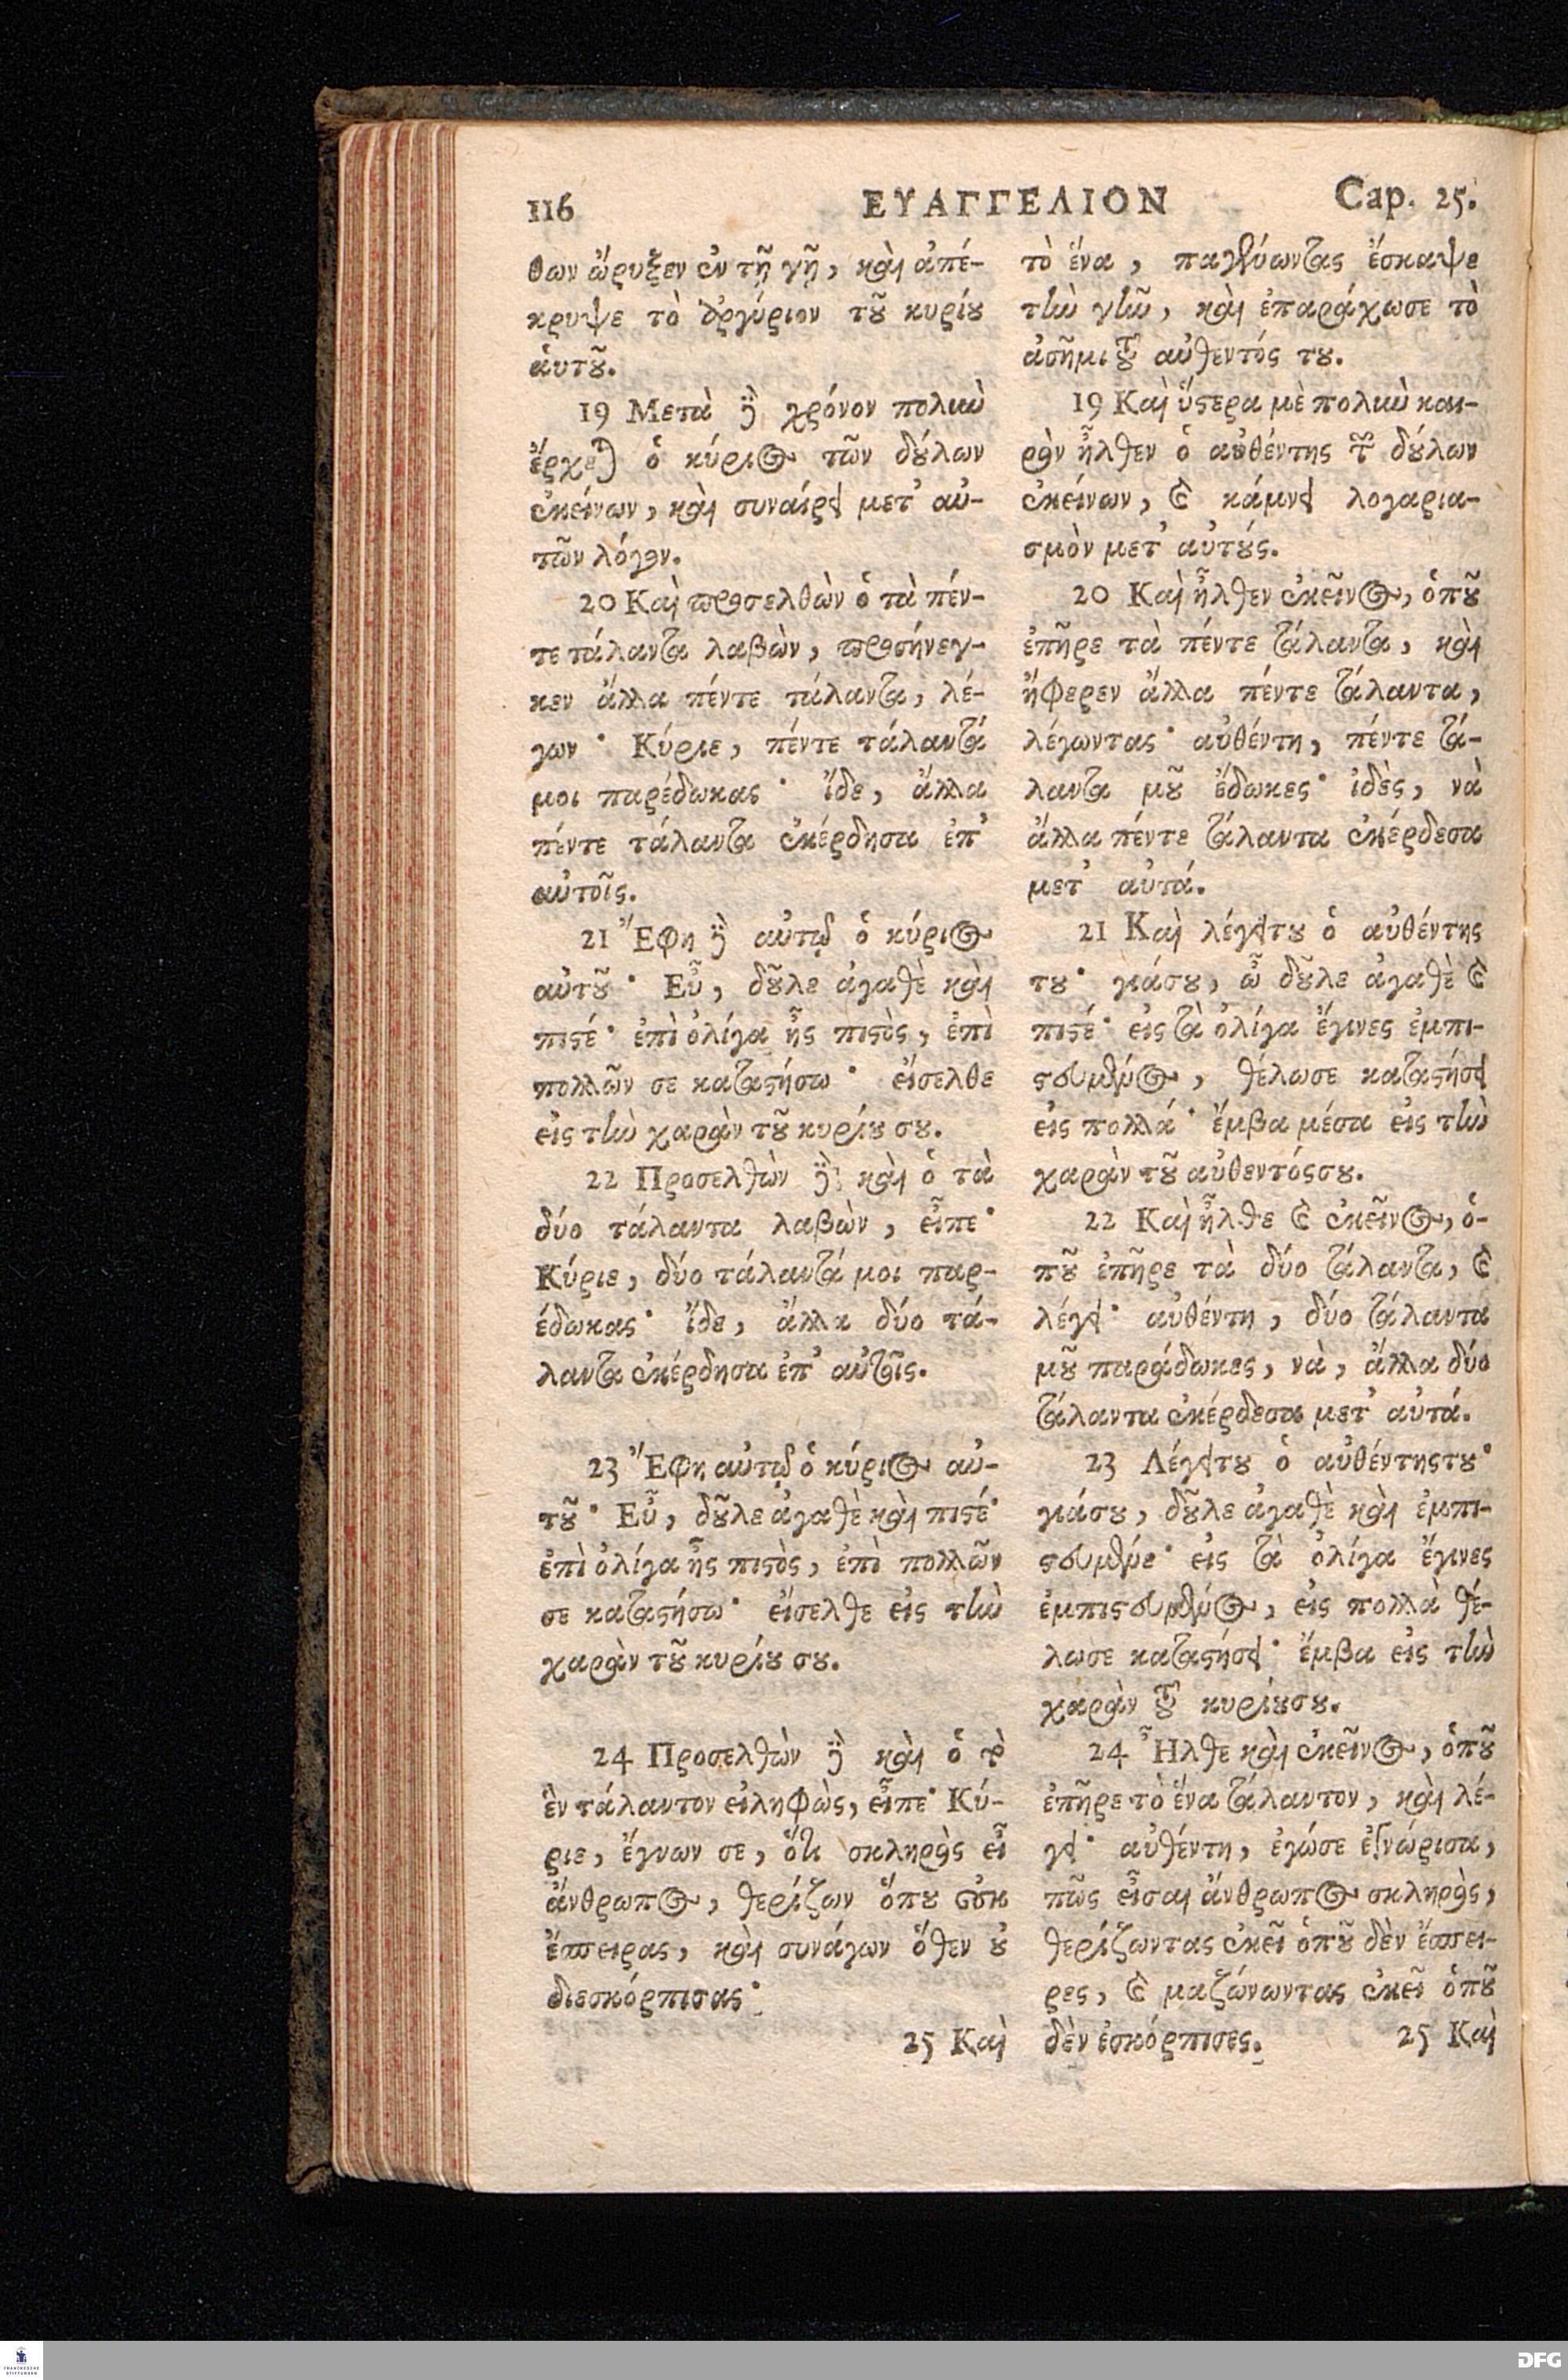 116 ΕΥΑΓΓΕΛΙΟΝ Cap. 25.
θων ὤρυξεν ἐν τῇ γῇ, καὶ ἀπέ-
κρυψε τὸ ἀργύριον τȣ͂ κυρίȣ
ἁυτȣ͂.
19 Μετὰ ϳ̀ χρόνον πολιὼ
ἔρχε) ὁ κύριος τῶν δȣ́λων
ἐκείνων, καὶ συναίρει μετ' αὐ-
τῶν λόγον.
20 Καὶ προσελθὼν ὁ τὰ πέν-
τε τάλαντα λαβὼν, προσήνεγ-
κεν ἄλλα πέντε τάλαντα, λέ-
γων· Κύριε, πέντε τάλαντά
μοι παρέδωκας· ἴδε, ἄλλα
πέντε τάλαντα ἐκέρδησα ἐπ'
αὐτοῖς.
21 Ἔφη δὲ αὐτῷ ὁ κύριος
αὐτȣ͂· Εὖ, δȣ͂λε ἀγαθὲ καὶ
πιϛέ· ἐπὶ ὀλίγα ἦς πιϛὸς, ἐπὶ
πολλῶν σε καταϛήσω· εἴσελθε
εἰς τὴν χαρὰν τȣ͂ κυρίȣ σȣ.
22 Προσελθὼν δὲ καὶ ὁ τὰ
δύο τάλαντα λαβὼν, εἶπε·
Κύριε, δύο τάλαντά μοι παρ-
έδωκας· ἴδε, ἄλλα δύο τά-
λαντα ἐκέρδησα ἐπ' αὐτοῖς.
23 Ἔφη αὐτῷ ὁ κύριος αὐ-
τȣ͂· Εὖ, δȣ͂λε ἀγαθὲ καὶ πιϛέ·
ἐπὶ ὀλίγα ἦς πιϛὸς, ἐπὶ πολλῶν
σε καταϛήσω· εἴσελθε εἰς τὴν
χαρὰν τȣ͂ κυρίȣ σȣ.
24 Προσελθὼν δὲ καὶ ὁ τὸ
ἓν τάλαντον εἰληφὼς, εἶπε· Κύ-
ριε, ἔγνων σε, ὅτι σκληρὸς εἶ
ἄνθρωπος, θερίζων ὅπȣ οὐκ
ἔσπειρας, καὶ συνάγων ὅθεν ȣ̓
διεσκόρπισας·
25 Καὶ
τὸ ἕνα, παγαίνωντας ἔσκαψε
τὴν γῆν, καὶ ἐπαράχωσε τὸ
ἀσῆμι τȣ͂ αὐθεντός τȣ.
19 Καὶ ὕϛερα μὲ πολὺν και-
ρὸν ἦλθεν ὁ αὐθέντης τῶν δȣ́λων
ἐκείνων, καὶ κάμνει λογαρια-
σμὸν μετ' αὐτȣ́ς.
20 Καὶ ἦλθεν ἐκεῖνος, ὁπȣ͂
ἐπῆρε τὰ πέντε τάλαντα, καὶ
ἤφερεν ἄλλα πέντε τάλαντα,
λέγωντας· αὐθέντη, πέντε τά-
λαντα μȣ͂ ἔδωκες· ἰδὲς, νὰ
ἄλλα πέντε τάλαντα ἐκέρδεσα
μετ' αὐτά.
21 Καὶ λέγειτȣ ὁ αὐθέντης
τȣ· γιάσȣ, ὦ δȣ͂λε ἀγαθὲ καὶ
πιϛέ· εἰς τὰ ὀλίγα ἔγινες ἐμπι-
ϛευμένος, θέλωσε καταϛήσει
εἰς πολλά· ἔμβα μέσα εἰς τὴν
χαρὰν τȣ͂ αὐθεντόςσȣ.
22 Καὶ ἦλθε καὶ ἐκεῖνος, ὁ-
πȣ͂ ἐπῆρε τὰ δύο τάλαντα, καὶ
λέγει· αὐθέντη, δύο τάλαντα
μȣ͂ παράδωκες, νὰ, ἄλλα δύο
τάλαντα ἐκέρδεσα μετ' αὐτά.
23 Λέγειτȣ ὁ αὐθέντηςτȣ·
γιάσȣ, δȣ͂λε ἀγαθὲ καὶ ἐμπι-
ϛευμένε· εἰς τὰ ὀλίγα ἔγινες
ἐμπιϛευμένος, εἰς πολλὰ θέ-
λωσε καταϛήσει· ἔμβα εἰς τὴν
χαρὰν τȣ͂ κυρίȣσȣ.
24 Ἦλθε καὶ ἐκεῖνος, ὁπȣ͂
ἐπῆρε τὸ ἕνα τάλαντον, καὶ λέ-
γει· αὐθέντη, ἐγώσε ἐγνώρισα,
πῶς εἶσαι ἄνθρωπος σκληρὸς,
θερίζωντας ἐκεῖ ὁπȣ͂ δὲν ἔσπει-
ρες, καὶ μαζώνωντας ἐκεῖ ὁπȣ͂
δὲν ἐσκόρπισες.
25 Καὶ
FRANCKESCHE STIFTUNGEN
DFG